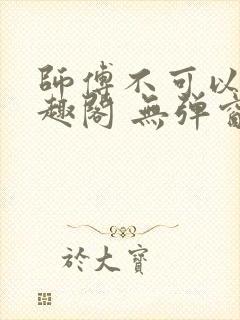 師傅不可以
趣閣 無弹窗
於大寶